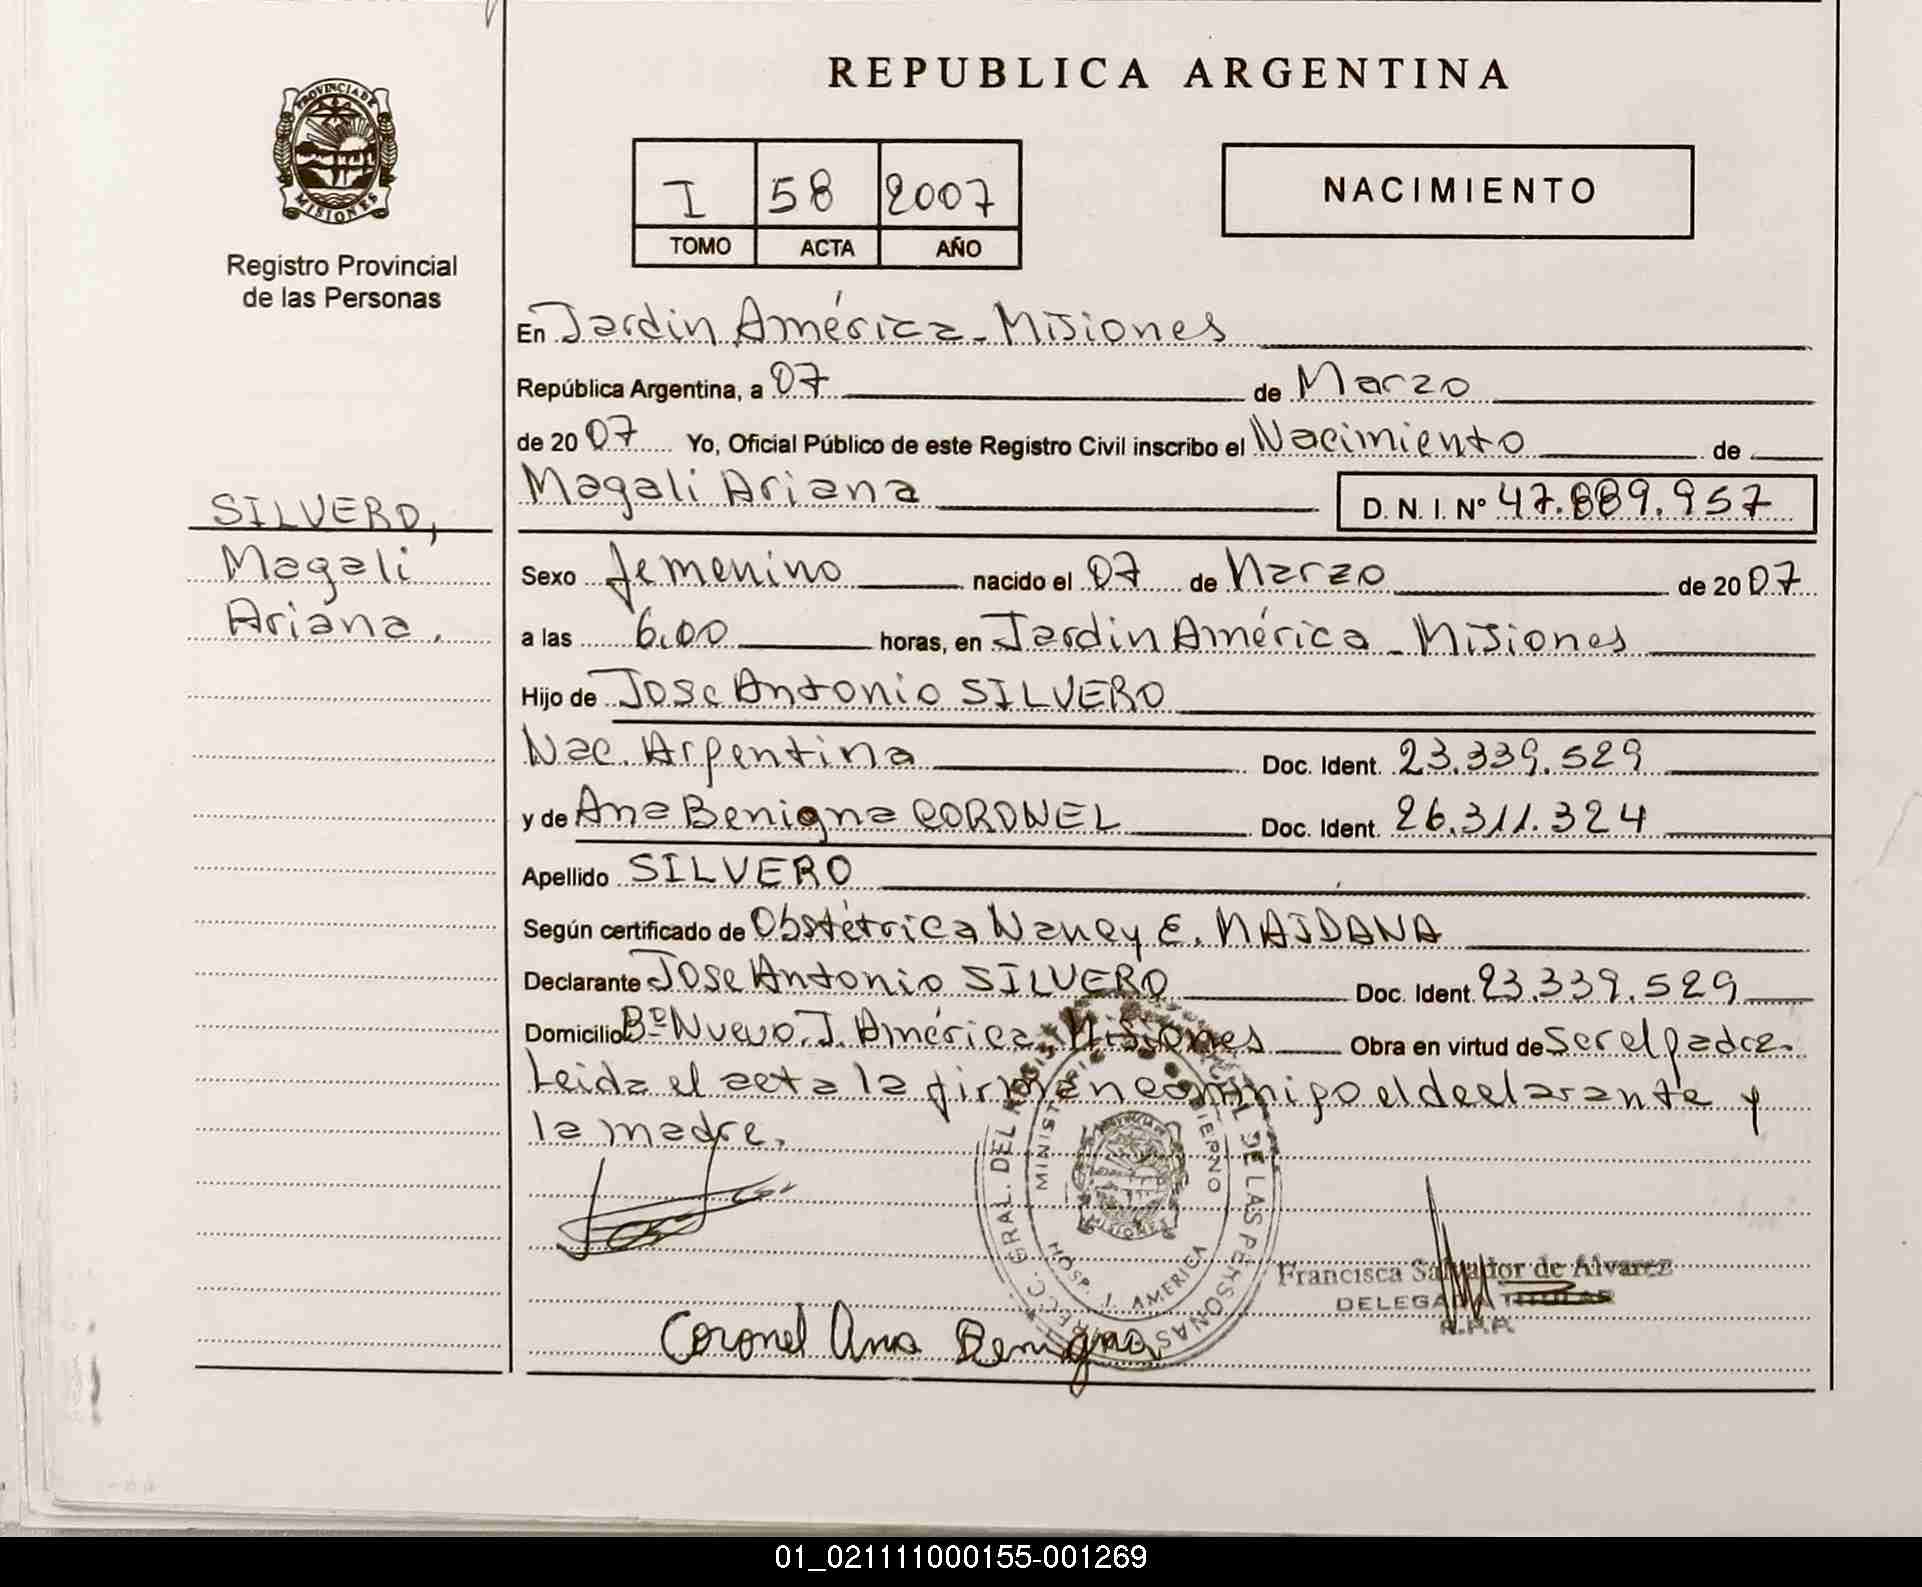 PROVINCIA DE
MISIONES
Registro Provincial
de las Personas
SILVERO,
Magali
Ariana.
REPUBLICA ARGENTINA
I 58 2007
TOMO ACTA AÑO
NACIMIENTO
En Jardin América - Misiones
República Argentina, a 07 de Marzo
de 2007 Yo, Oficial Público de este Registro Civil inscribo el Nacimiento de
Magali Ariana D. N. I. Nº 47.889.957
Sexo femenino nacido el 07 de Marzo de 2007
a las 6,00 horas, en Jardin América - Misiones
Hijo de Jose Antonio SILVERO
Nac. Argentina Doc. Ident. 23.339.529
y de Ana Benigna CORONEL Doc. Ident. 26.311.324
Apellido SILVERO
Según certificado de Obstétrica Nancy E. MAIDANA
Declarante Jose Antonio SILVERO Doc. Ident. 23.339.529
Domicilio Bº Nuevo. J. América Misiones Obra en virtud de ser el padre.
Leida el acta la firman conmigo el declarante y
la madre.
MINISTERIO GOBIERNO
HOSP. J. AMERICA
MISIONES
Francisca Salvador de Alvarez
DELEGADA TITULAR
R.P.P.
Coronel Ana Benigna
01_021111000155-001269